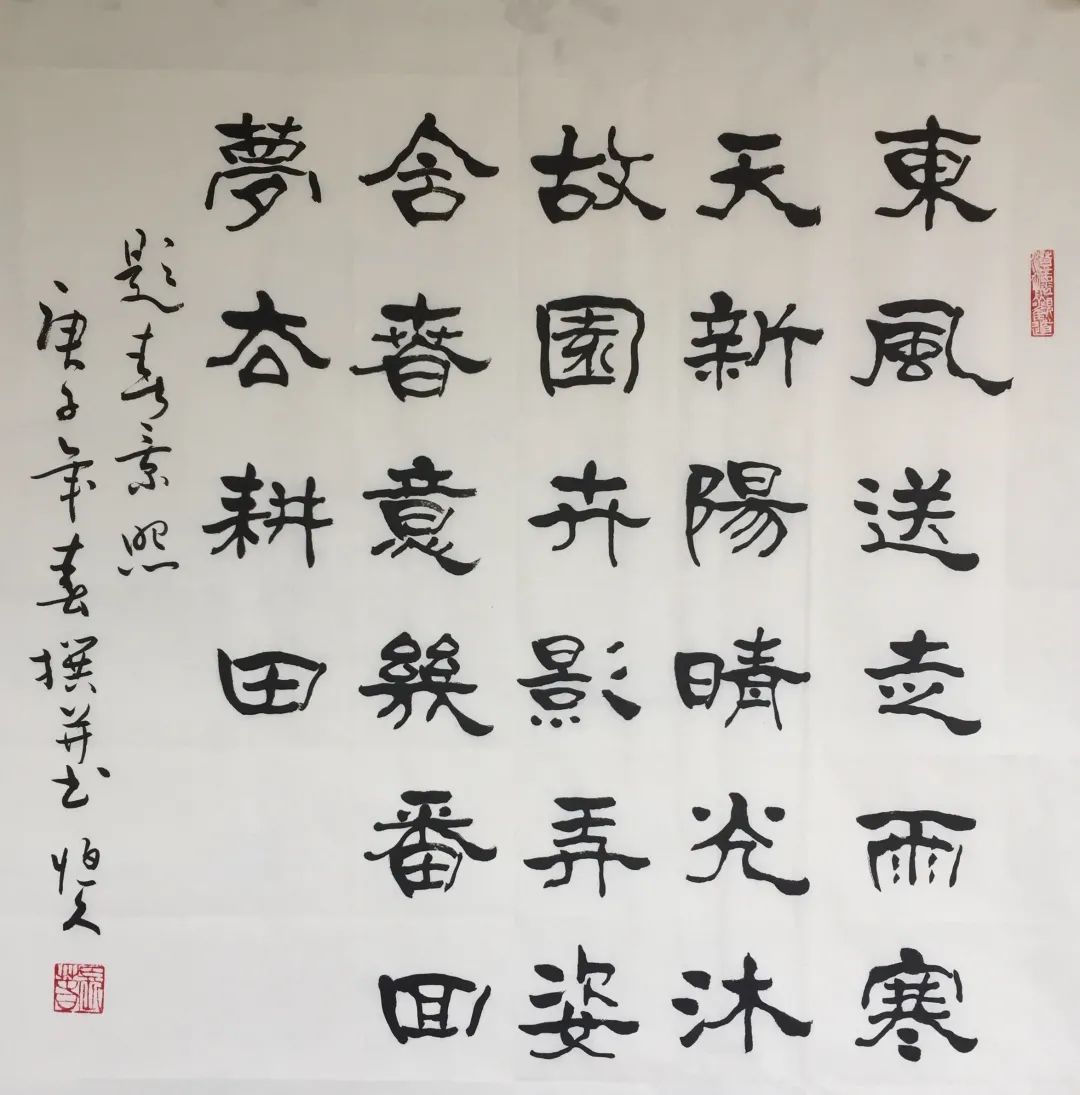 東風送走雨寒
天新陽晴光沐
故園卉影弄姿
舍春意幾番回
夢去耕田
題春景照
庚子年春撰并书 恒久